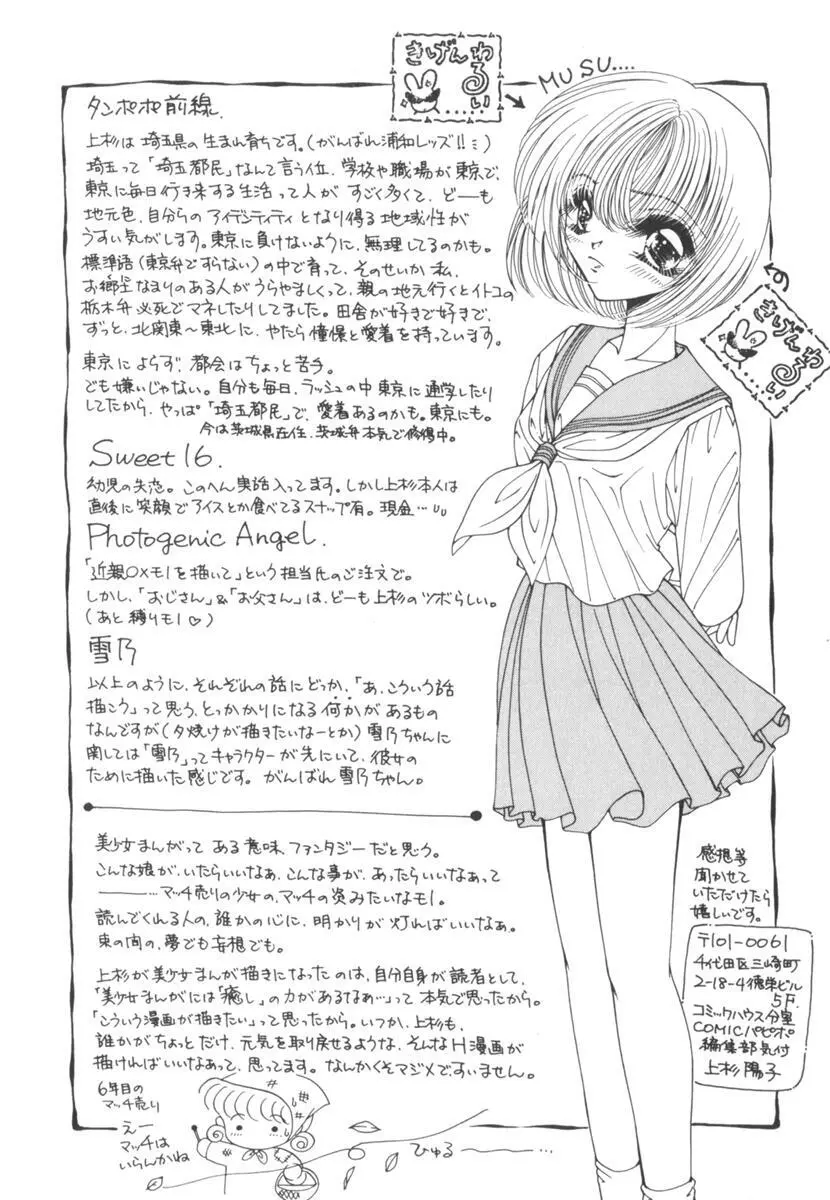 きげんわるい……
MUSU....
タンポポ前線.
上杉は埼玉県の生まれ育ちです。(がんばれ浦和レッズ!!ミ)
埼玉って「埼玉都民」なんて言う位、学校や職場が東京で、
東京に毎日行き来する生活って人が すごく多くて、どーも
地元色、自分らの アイデンティティ となり得る 地域性が
うすい気がします。東京に負けないように、無理してるのかも。
標準語(東京弁ですらない)の中で育って、そのせいか 私、
お郷土なまりのある人がうらやましくって、親の地元行くとイトコの
栃木弁 必死でマネしたりしてました。田舎が好きで好きで、
ずっと、北関東〜東北に、やたら憧憬と愛着を持っています。
東京によらず、都会はちょっと苦手。
でも嫌いじゃない。自分も毎日、ラッシュの中 東京に 通学したり
してたから、やっぱ「埼玉都民」で、愛着あるのかも。東京にも。
今は茨城県在住、茨城弁本気で修得中。
Sweet 16.
幼児の失恋。このへん実話入ってます。しかし上杉本人は
直後に笑顔でアイスとか食べてるスナップ有。現金…
Photogenic Angel.
「近親〇×モノを描いて」という担当氏のご注文で。
しかし、「おじさん」&「お父さん」は、どーも上杉のツボらしい。
(あと縛りモノ♡)
雪乃
以上のように、それぞれの話にどっか、「あ、こういう話
描こう」って思う、とっかかりになる何かがあるもの
なんですが(夕焼けが描きたいなーとか)雪乃ちゃんに
関しては「雪乃」ってキャラクターが先にいて、彼女の
ために描いた感じです。がんばれ雪乃ちゃん。
美少女まんがって ある意味、ファンタジーだと思う。
こんな娘が、いたらいいなあ、こんな事が、あったらいいなあって
―――…マッチ売りの少女の、マッチの炎みたいなモノ。
読んでくれる人の、誰かの心に、明かりが 灯ればいいなぁ。
束の間の、夢でも妄想でも。
上杉が美少女まんが描きになったのは、自分自身が読者として、
「美少女まんがには「癒し」の力があるなぁ…」って 本気で思ったから。
「こういう漫画が描きたい」って思ったから。いつか、上杉も、
誰かがちょっとだけ、元気を取り戻せるような、そんなH漫画が
描ければいいなあって、思ってます。なんかくそマジメですいません。
6年目の
マッチ売り
えー
マッチは
いらんかね
ひゅる――――…
きげんわるい……
感想等
聞かせて
いただけたら
嬉しいです。
〒101-0061
千代田区三崎町
2-18-4 徳栄ビル
5F.
コミックハウス分室
COMICパピポ
編集部気付
上杉陽子